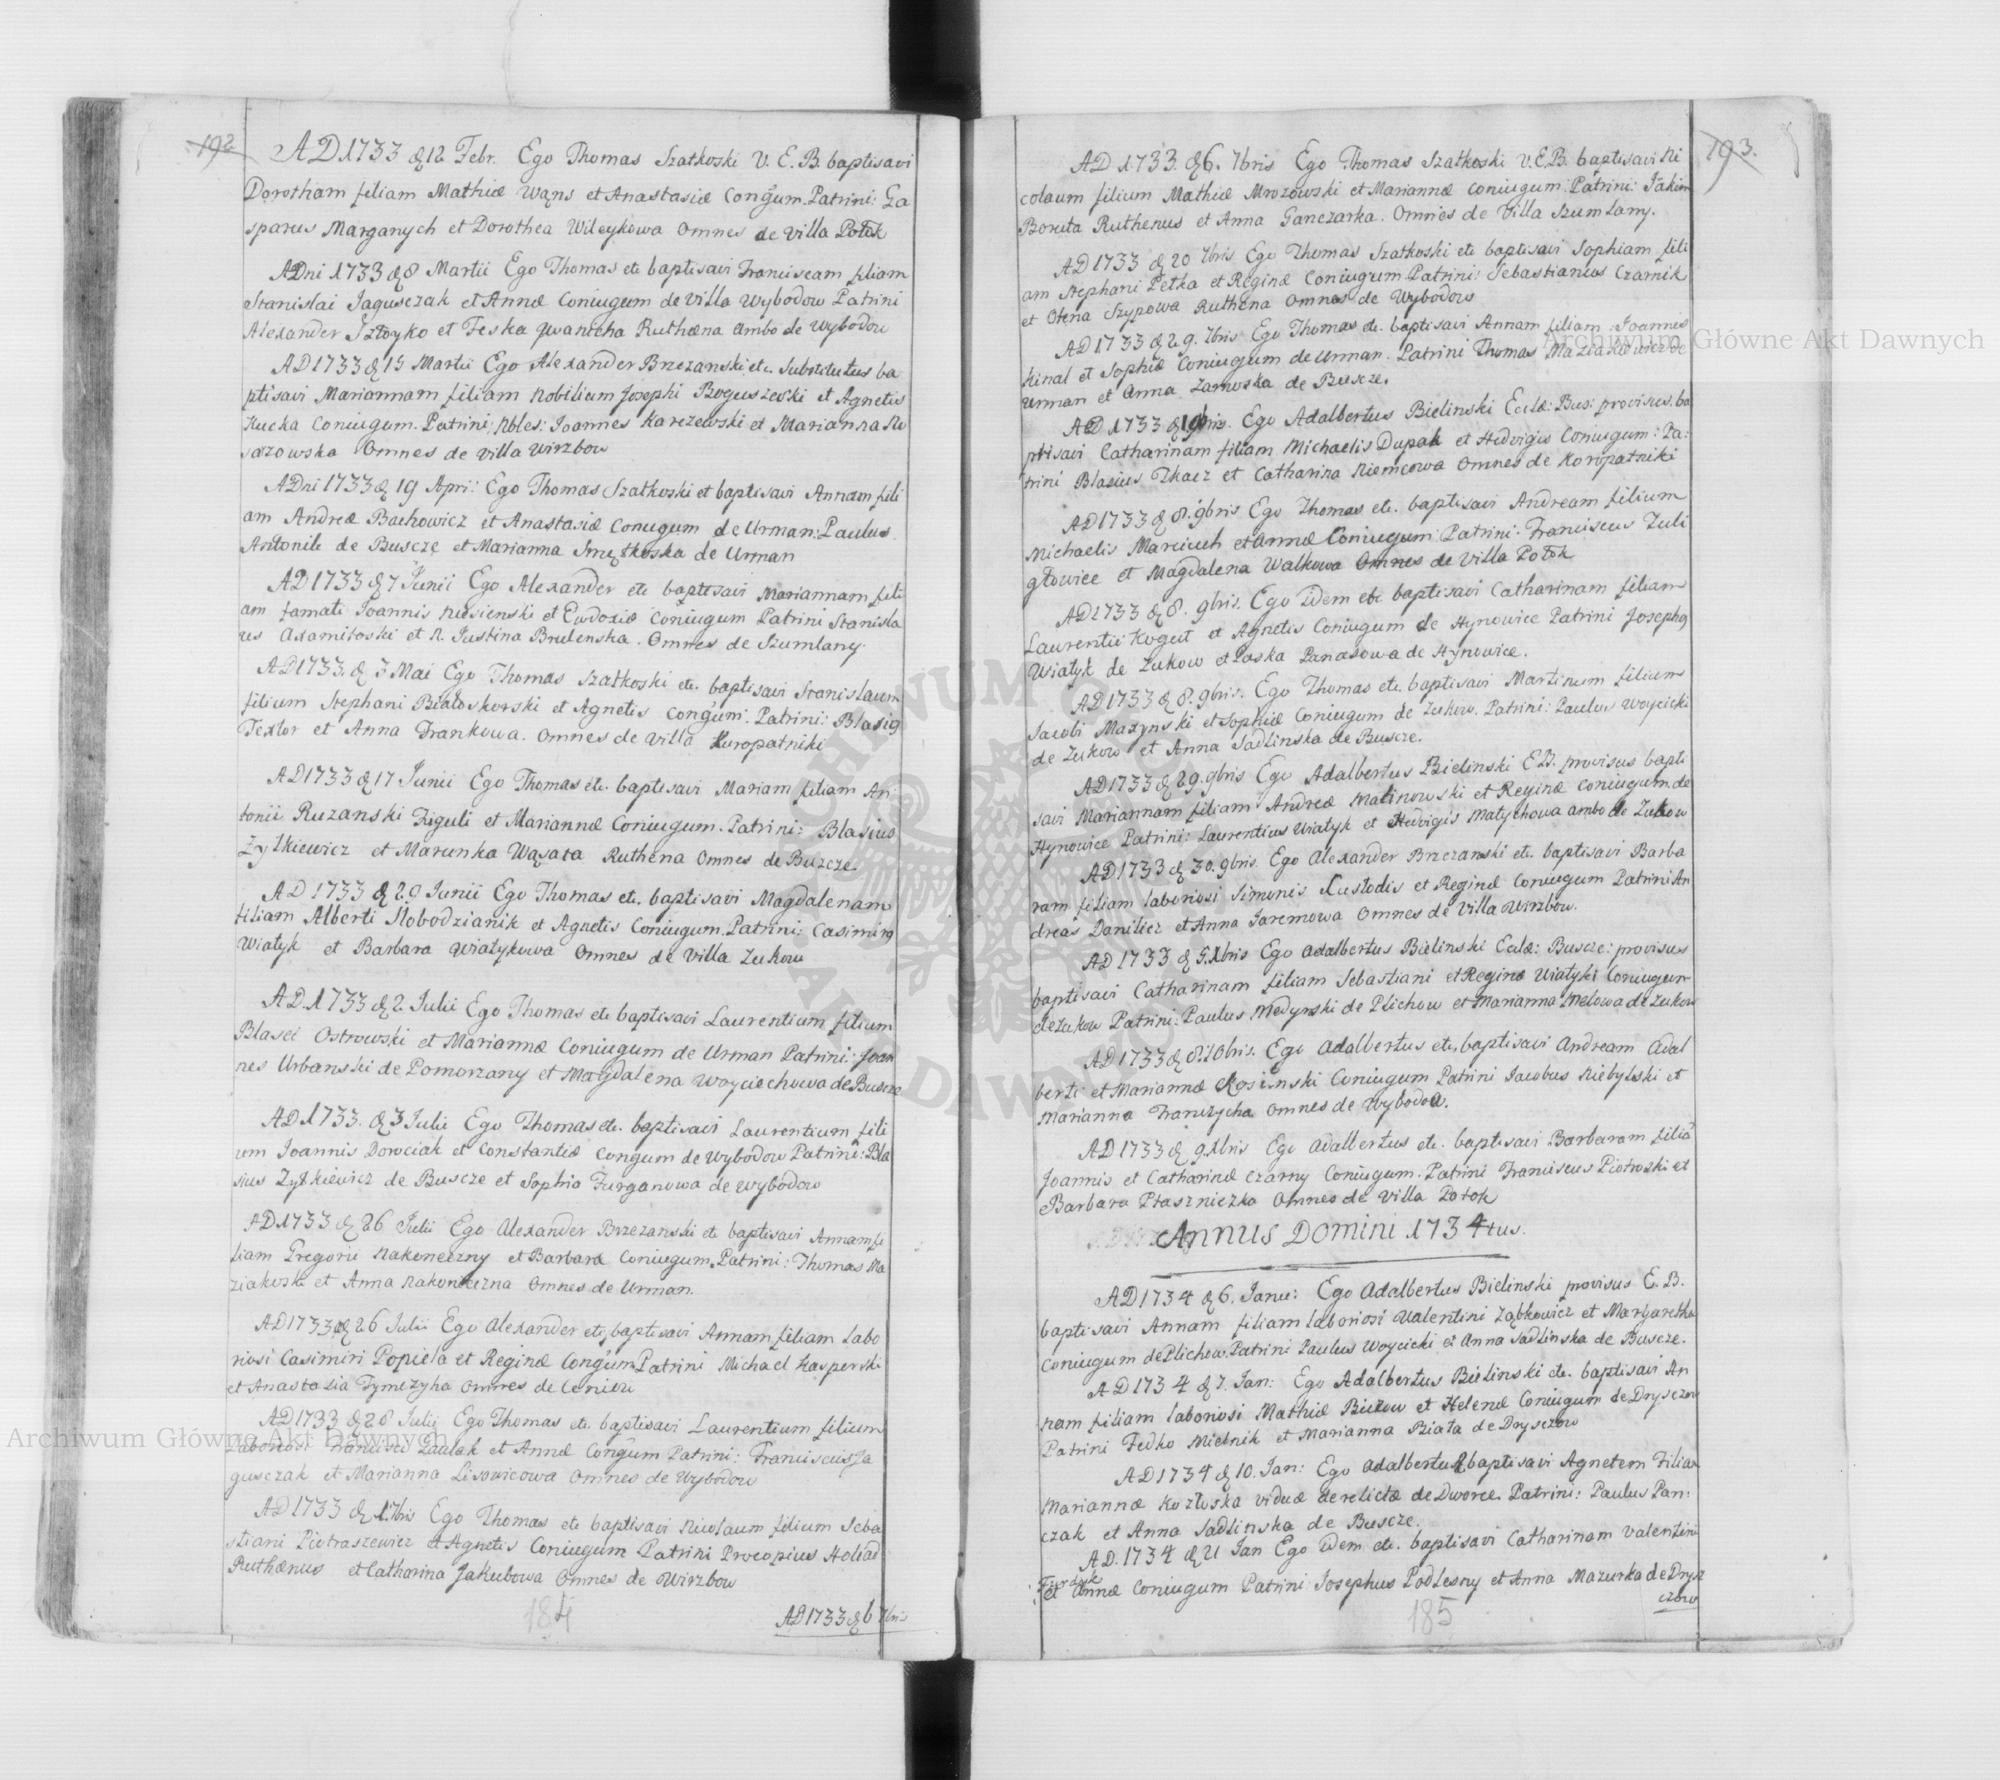 192
AD 1733 d 12 Febr. Ego Thomas Szatkoski V. E. B. baptisavi
Dorotham filiam Mathiæ Wąns et Anastasiæ Congum. Patrini: Ga
sparus Marganych et Dorothea Wileykowa omnes de villa Potok
ADni 1733 d 8 Martii Ego Thomas etc baptisavi Franciscam filiam
Stanislai Jagusczak et Annæ Coniugum de villa Wybodow Patrini
Alexander Sztoyko et Feska Jwanicha Ruthæna ambo de Wybodow
AD 1733 d 15 Martii Ego Alexander Brzezanski etc. substitutus ba
ptisavi Mariannam filiam Nobilium Josephi Boguszeski et Agnetis
Kucka Coniugum. Patrini: Nbles: Joannes Karczewski et Marianna Ru
sazowska Omnes de villa Wirzbow
ADni 1733 d 19 Apri: Ego Thomas Szatkoski et baptisavi Annam fili
am Andreæ Bachowicz et Anastasiæ Coniugum de Urman: Paulus
Antonik de Buscze et Marianna Smętkoska de Urman
AD 1733 d 7 Junii Ego Alexander etc baptisavi Mariannam fili
am famati Joannis Rusienski et Ewdoxiæ Coniugum Patrini Stanisla
us Adamitoski et N. Justina Brulenska. Omnes de Szumlany.
AD 1733. d 3 Mai Ego Thomas Szatkoski etc. baptisavi Stanislaum
filium Stephani Białoskorski et Agnetis Congum: Patrini: Blasig
Textor et Anna Frankowa. Omnes de villa Kuropatniki
AD 1733 d 17 Junii Ego Thomas etc. baptisavi Mariam filiam An
tonii Ruzanski Figuli et Mariannæ Coniugum. Patrini: Blasius
Zytkiewicz et Marunka Wąsata Ruthena Omnes de Buscze.
AD 1733 d 29 Junii Ego Thomas etc. baptisavi Magdalenam
filiam Alberti Slobodzianik et Agnetis Coniugum. Patrini: Casimirg
Wiatyk et Barbara Wiatykowa Omnes de villa Zukow
AD. 1733 d 2 Julii Ego Thomas etc baptisavi Laurentium filium
Blasei Ostrowski et Mariannæ Coniugum de Urman Patrini: Joan
nes Urbanski de Pomorzany et Magdalena Woyciechowa de Buscze
AD. 1733. d 3 Julii Ego Thomas etc. baptisavi Laurentium fili
um Joannis Dorociak et Constantiæ Congum de Wybodow Patrini: Bla
sius Zytkiewicz de Buscze et Sophia Furganowa de Wybodow
AD 1733 d 26 Julii Ego Alexander Brzezanski etc baptisavi Annam fi
liam Gregorii Nakoneczny et Barbara Coniugum. Patrini: Thomas Ma
ziakoski et Anna Nakoneczna Omnes de Urman.
AD 1733 d 26 Julii Ego Alexander etc, baptisavi Annam filiam Labo
riosi Casimiri Popiela et Reginæ Congum Patrini Michael Kasperski
et Anastazia Tymczyha Omnes de Ceniow
AD 1733 d 28 Julii Ego Thomas etc baptisavi Laurentium filium
Laboriosi Francisci Zaulak et Annæ Congum Patrini: Franciscus Ja
gusczak et Marianna Lisowicowa Omnes de Wybodow
AD 1733 d 1. 7bris Ego Thomas etc baptisavi Nicolaum filium Seba
stiani Pietraszewicz et Agnetis Coniugum Patrini Procopius Holiad
Ruthænus et Catharina Jakubowa Omnes de Wirzbow
184
AD 1733 d 6 7bris
193.
AD 1733. d 6. 7bris Ego Thomas Szatkoski V. E. B. baptisavi Ni
colaum filium Mathiæ Mrozowski et Mariannæ Coniugum Patrini: Jakim
Boruta Ruthenus et Anna Ganczarka. Omnes de villa Szumlany.
AD 1733 d 20 7bris Ego Thomas Szatkoski etc baptisavi Sophiam fili
am Stephani Petka et Reginæ Coniugum Patrini: Sebastianus Czarnik
et Olena Szypowa Ruthena Omnes de Wybodow
AD 1733 d 29. 7bris Ego Thomas etc. baptisavi Annam filiam Joannis
Kinal et Sophiæ Coniugum de Urman. Patrini Thomas Maziakiewicz de
Urman et Anna Zamoska de Buscze.
AD 1733 d 1 9bris. Ego Adalbertus Bielinski Eccl: Bus: provisus. ba
ptisavi Catharinam filiam Michaelis Dupak et Hedvigis Coniugum: Pa:
trini Blasius Tkacz et Catharina Niemcowa Omnes de Koropatniki
AD 1733 d 8. 9bris Ego Thomas etc. baptisavi Andream filium
Michaelis Marciuch et Annæ Coniugum Patrini: Franciscus Zuli
głowicz et Magdalena Walkowa Omnes de villa Potok
AD 1733 d 8. 9bris. Ego idem etc baptisavi Catharinam filiam
Laurentii Kogut et Agnetis Coniugum de Hynowice Patrini Josephg
Wiatyk de Zukow et Paska Panasowa de Hynowice.
AD 1733 d 8. 9bris. Ego Thomas etc. baptisavi Martinum filium
Jacobi Mazynski et Sophiæ Coniugum de Zukow. Patrini: Paulus Woycicki
de Zukow et Anna Sadlinska de Buscze.
AD 1733 d 29. 9bris Ego Adalbertus Bielinski E.B. provisus bapti
savi Mariannam filiam Andreæ Malinowski et Reginæ Coniugum de
Hynowice Patrini: Laurentius Wiatyk et Hedvigis Matychowa ambo de Zukow
AD 1733 d 30. 9bris. Ego Alexander Brzezanski etc. baptisavi Barba
ram filiam laboriosi Simonis Custodis et Reginæ Coniugum Patrini An
dreas Danilicz et Anna Jaremowa Omnes de villa Wirzbow.
AD 1733 d 5. Xbris Ego Adalbertus Bielinski Eccl: Buscze: provisus
baptisavi Catharinam filiam Sebastiani et Reginæ Wiatyki Coniugum
de Zukow Patrini: Paulus Medynski de Plichow et Marianna Smelowa de Zukow
AD 1733 d 8. 10bris. Ego Adalbertus etc. baptisavi Andream Adal
berti et Mariannæ Kosinski Coniugum Patrini Jacobus Niebylski et
Marianna Franczycha Omnes de Wybodow.
AD 1733 d 9. Xbris Ego Adalbertus etc. baptisavi Barbaram filiã
Joannis et Catharinæ Czarny Coniugum. Patrini Franciscus Piotroski et
Barbara Ptaszniczka Omnes de villa Potok
Annus Domini 1734tus.
AD 1734 d 6. Janu: Ego Adalbertus Bielinski provisus E. B.
baptisavi Annam filiam laboriosi Valentini Ząbkowicz et Margaretha
Coniugum de Plichow. Patrini Paulus Woycicki et Anna Sadlinska de Buscze.
AD 1734 d 7. Jan: Ego Adalbertus Bielinski etc. baptisavi An
nam filiam laboriosi Mathiæ Burow et Helenæ Coniugum de Dryszczow
Patrini Fedko Mielnik et Marianna Biała de Dryszczow
AD 1734 d 10. Jan: Ego Adalbertus baptisavi Agnetem Filiam
Mariannæ Kozłoska viduæ derelictæ de Dworce. Patrini: Paulus Pan:
czak et Anna Sadlinska de Buscze.
AD. 1734 d 21 Jan Ego idem etc. baptisavi Catharinam Valentini
et Annæ Coniugum Patrini Josephus Podlesny et Anna Mazurka de Drysz
czow
185
Archiwum Główne Akt Dawnych
Archiwum Główne Akt Dawnych
ARCHIWUM GŁÓWNE AKT DAWNYCH